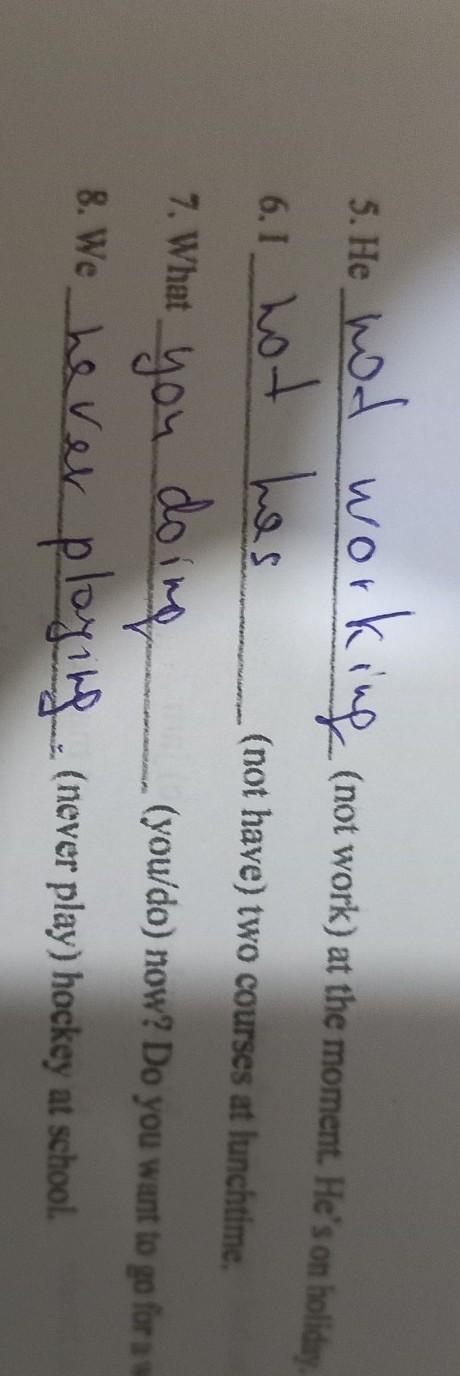 5. He not working (not work) at the moment. He's on holiday.
6. I not hes (not have) two courses at lunchtime.
7. What you doing (you/do) now? Do you want to go for a
8. We never playing. (never play) hockey at school.